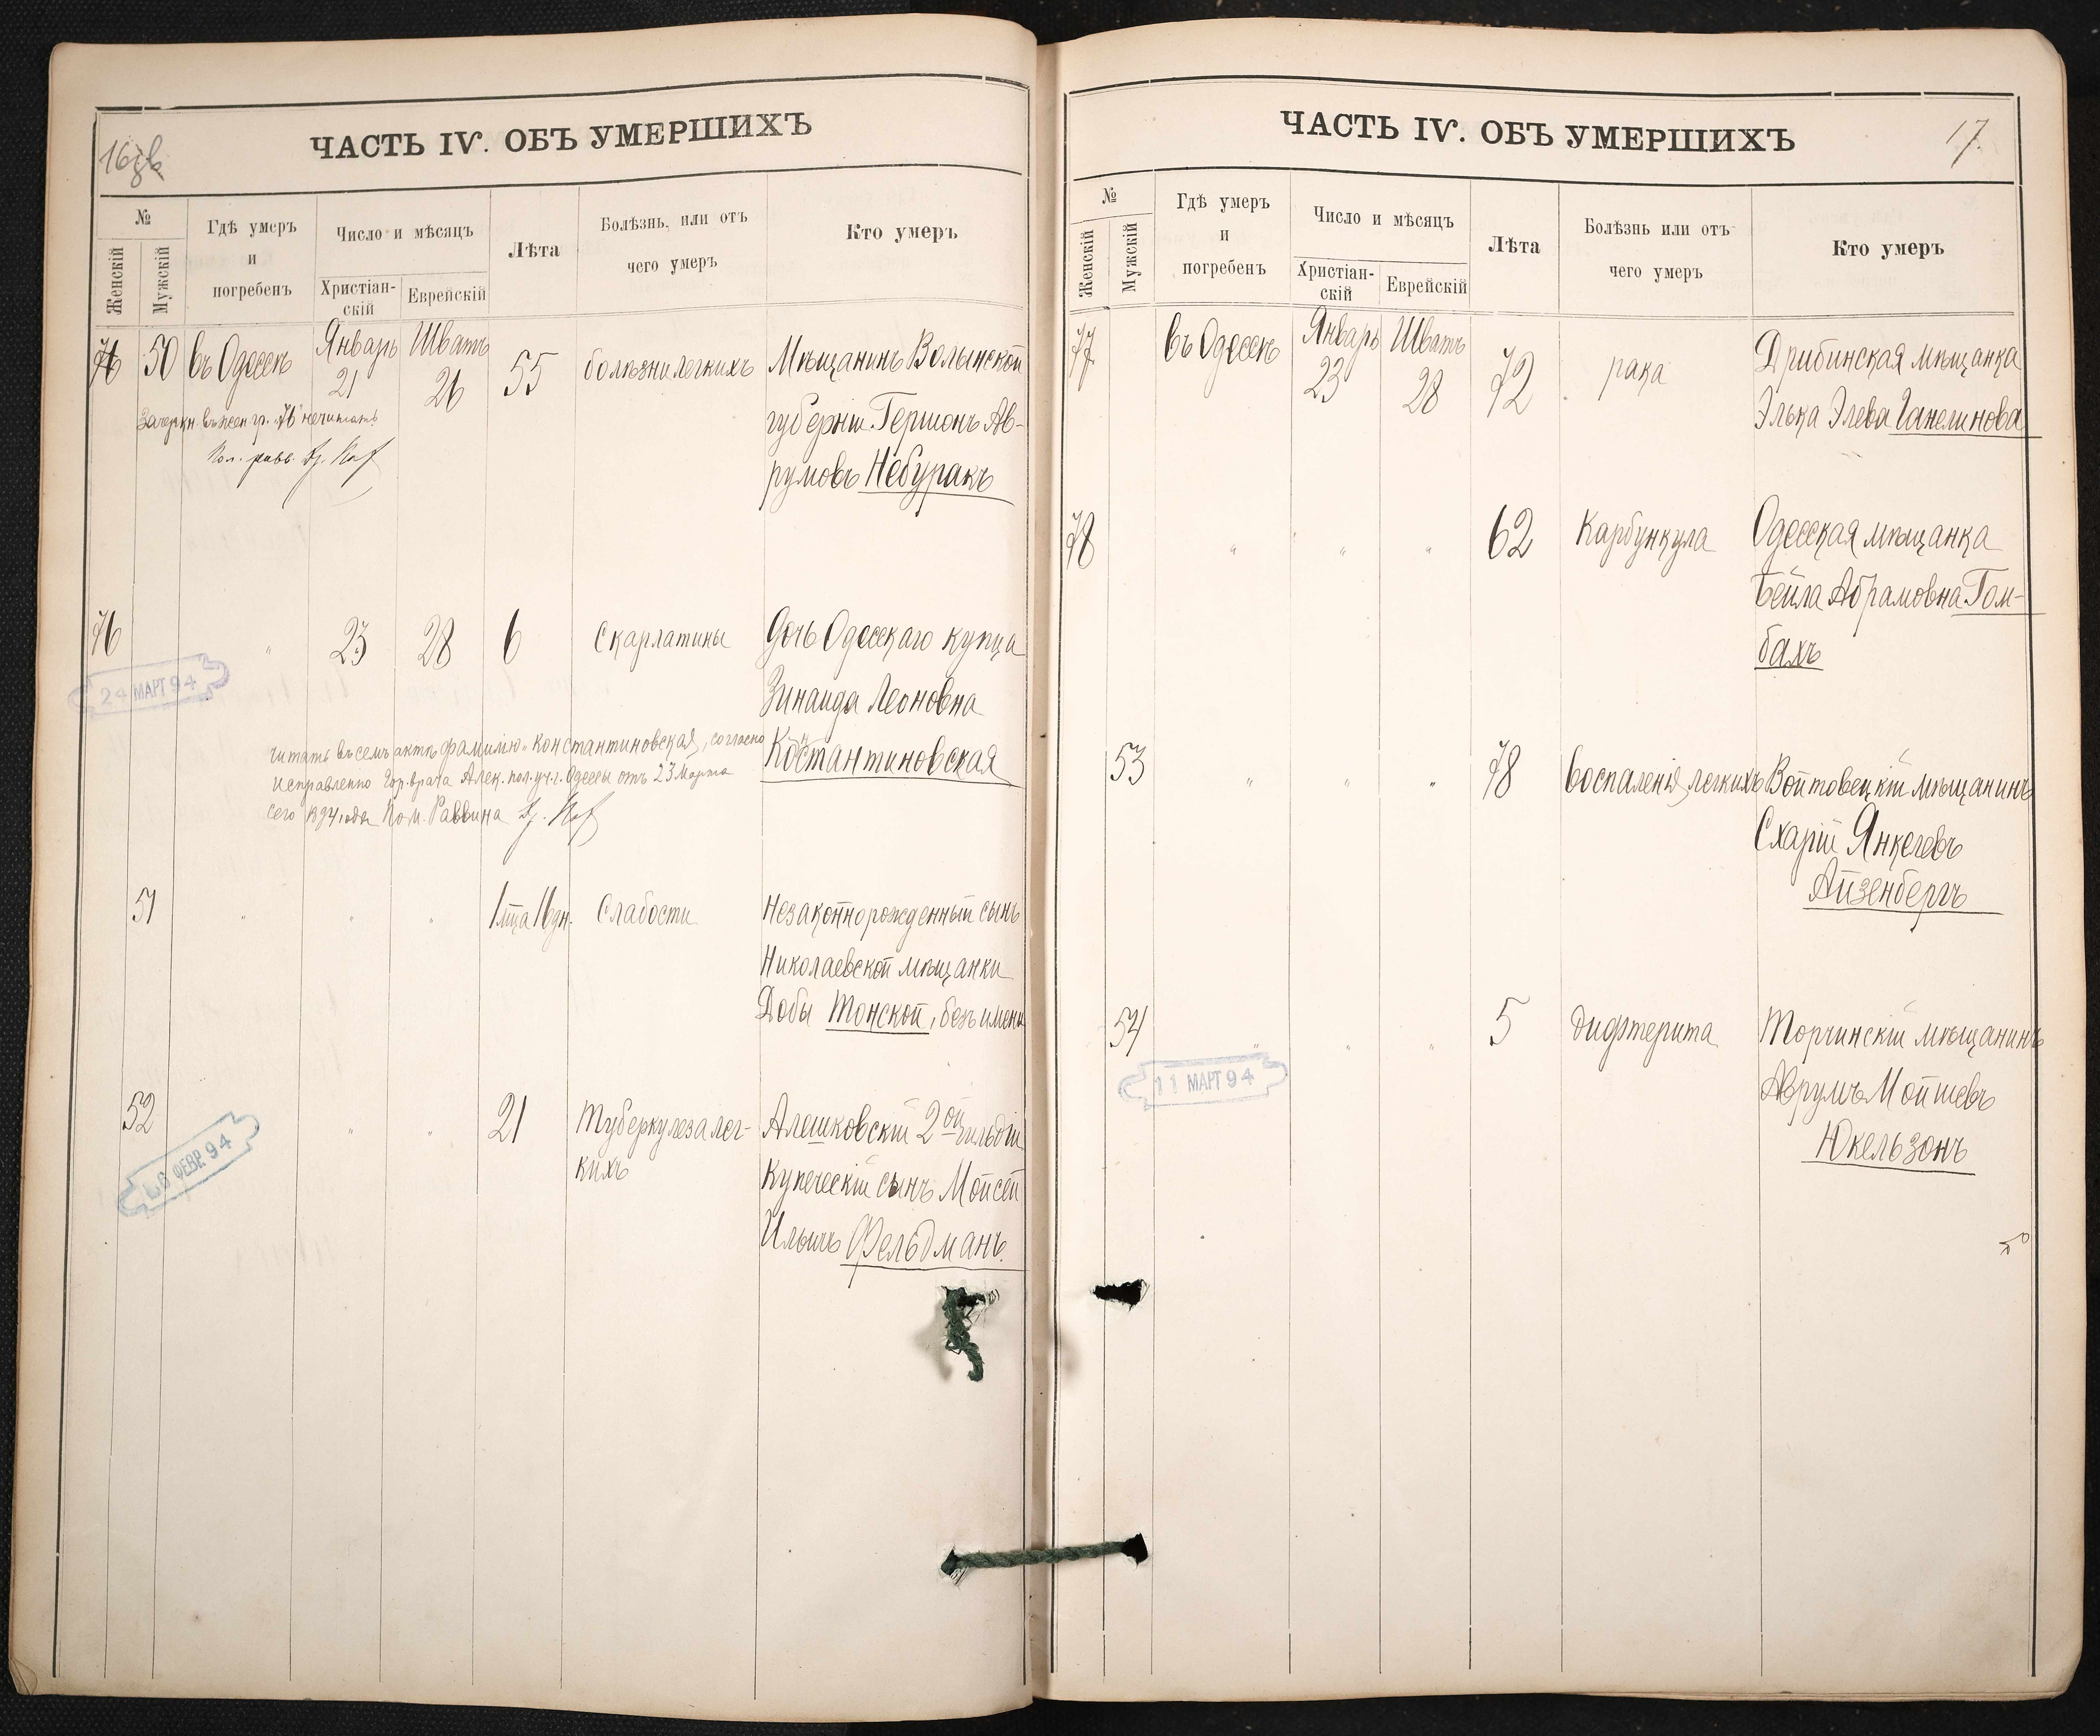 16
ЧАСТЬ IV. ОБЪ УМЕРШИХЪ
№
Женскій
Мужскій
Гдѣ умеръ
и
погребенъ
Число и мѣсяцъ
Христіан-
скій
Еврейскій
Лѣта
Болѣзнь, или отъ
чего умеръ
Кто умеръ
76 50 въ Одессѣ Январь 21 Шватъ 26 55 болѣзни легкихъ Мѣщанинъ Волынской
губерніи Гершонъ Ав-
румовъ Небуракъ
Зачеркн. въ жен. гр. "76" не читать
Пол. равв.
76 " 23 28 6 Скарлатины Дочь Одесскаго купца
Зинаида Леоновна
Костантиновская
24 МАРТ 94
Читать въ семъ актѣ фамилію "Константиновская", согласно
исправленію Гор. врача Алек. пол. уч. г. Одессы отъ 23 Марта
сего 1894 года Пом. Раввина
51 " " " 1 мца 16 дн. Слабости Незаконнорожденный сынъ
Николаевской мѣщанки
Добы Тонской, безъ имени
52 " " " 21 Туберкулеза лег-
кихъ
Алешковскій 2ой гильдіи
Купеческій сынъ Мойсей
Ильичъ Фельдманъ.
6 ФЕВР. 94
17
ЧАСТЬ IV. ОБЪ УМЕРШИХЪ
№
Женскій
Мужскій
Гдѣ умеръ
и
погребенъ
Число и мѣсяцъ
Христіан-
скій
Еврейскій
Лѣта
Болѣзнь или отъ
чего умеръ
Кто умеръ
77 въ Одессѣ Январь 23 Шватъ 28 72 рака Дрибинская мѣщанка
Элька Элева Ганелинова
78 " " " 62 Карбункула Одесская мѣщанка
Бейла Абрамовна Гом-
бахъ
53 " " " 78 воспаленія легкихъ Войтовецкій мѣщанинъ
Схарій Янкелевъ
Айзенбергъ
54 " " " 5 дифтерита Торчинскій мѣщанинъ
Аврумъ Мойшевъ
Юкельзонъ
11 МАРТ 94